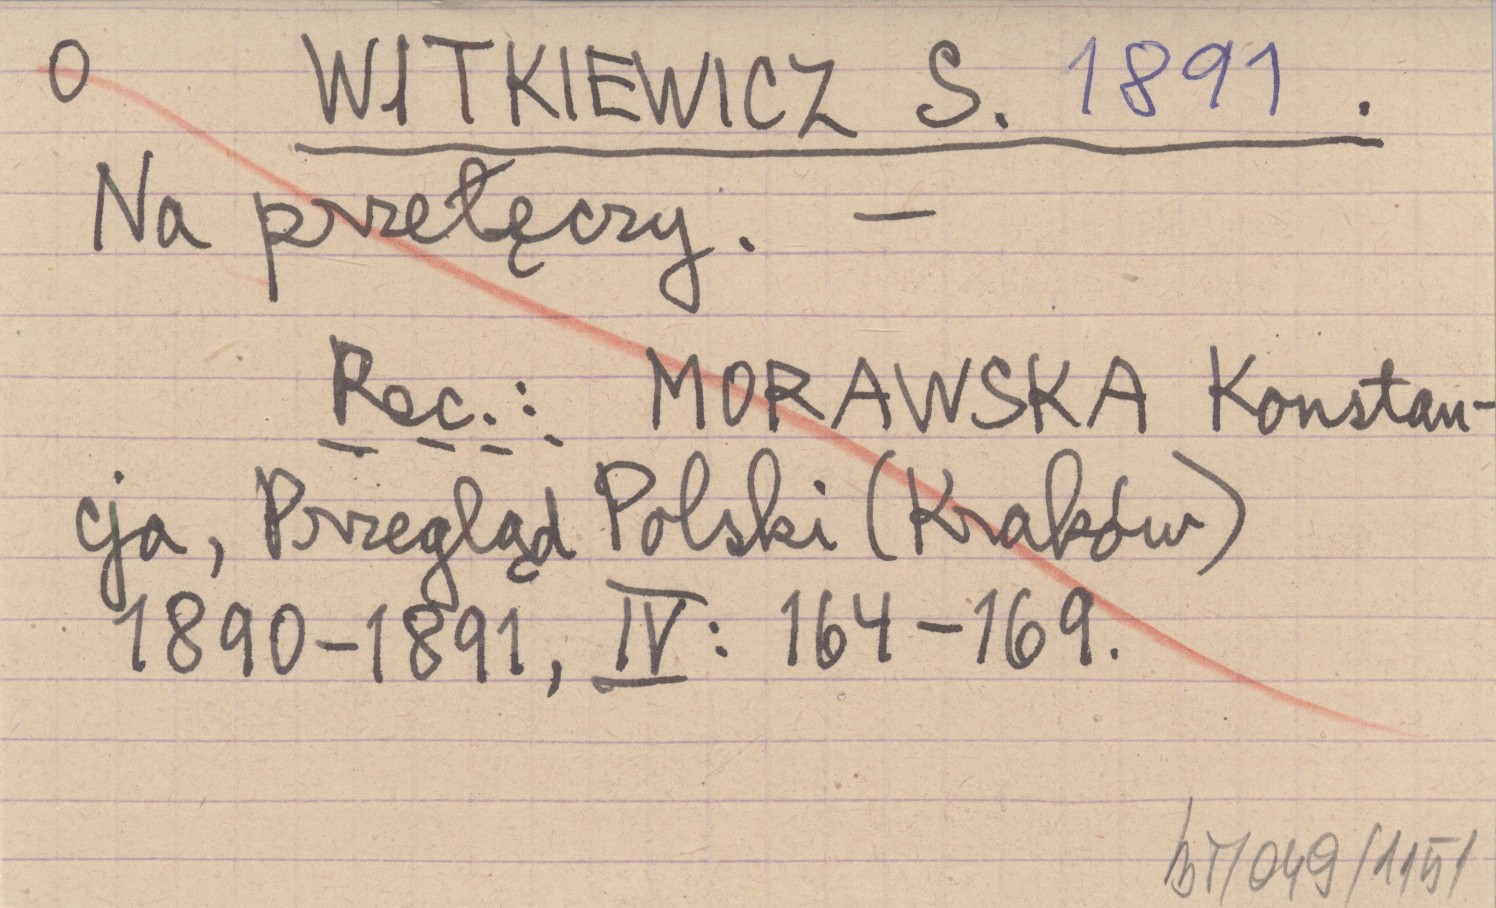 O WITKIEWICZ S. 1891.
Na przełęczy. —
Rec.: MORAWSKA Konstan-
cja, Przegląd Polski (Kraków)
1890-1891, IV: 164-169.